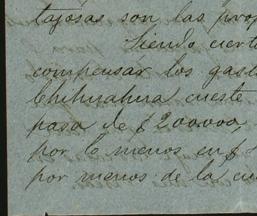 tajosas son las prop
Siendo cierto
compensar los gast
Chihuahua cueste
pasa de $200.000,
por lo menos en $
por menos de la cu